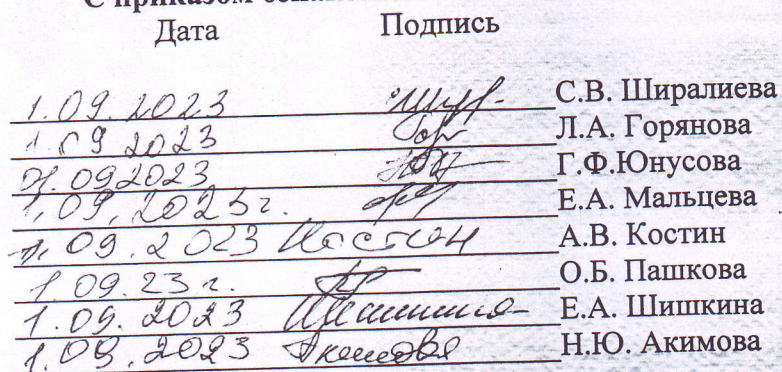 С приказом
Дата Подпись
1.09.2023 С.В. Ширалиева
1.09 2023 Л.А. Горянова
01.09 2023 Г.Ф.Юнусова
1.09.2023г. Е.А. Мальцева
1.09.2023 Костин А.В. Костин
1.09.23г. О.Б. Пашкова
1.09.2023 Е.А. Шишкина
1.09.2023 Акимова Н.Ю. Акимова